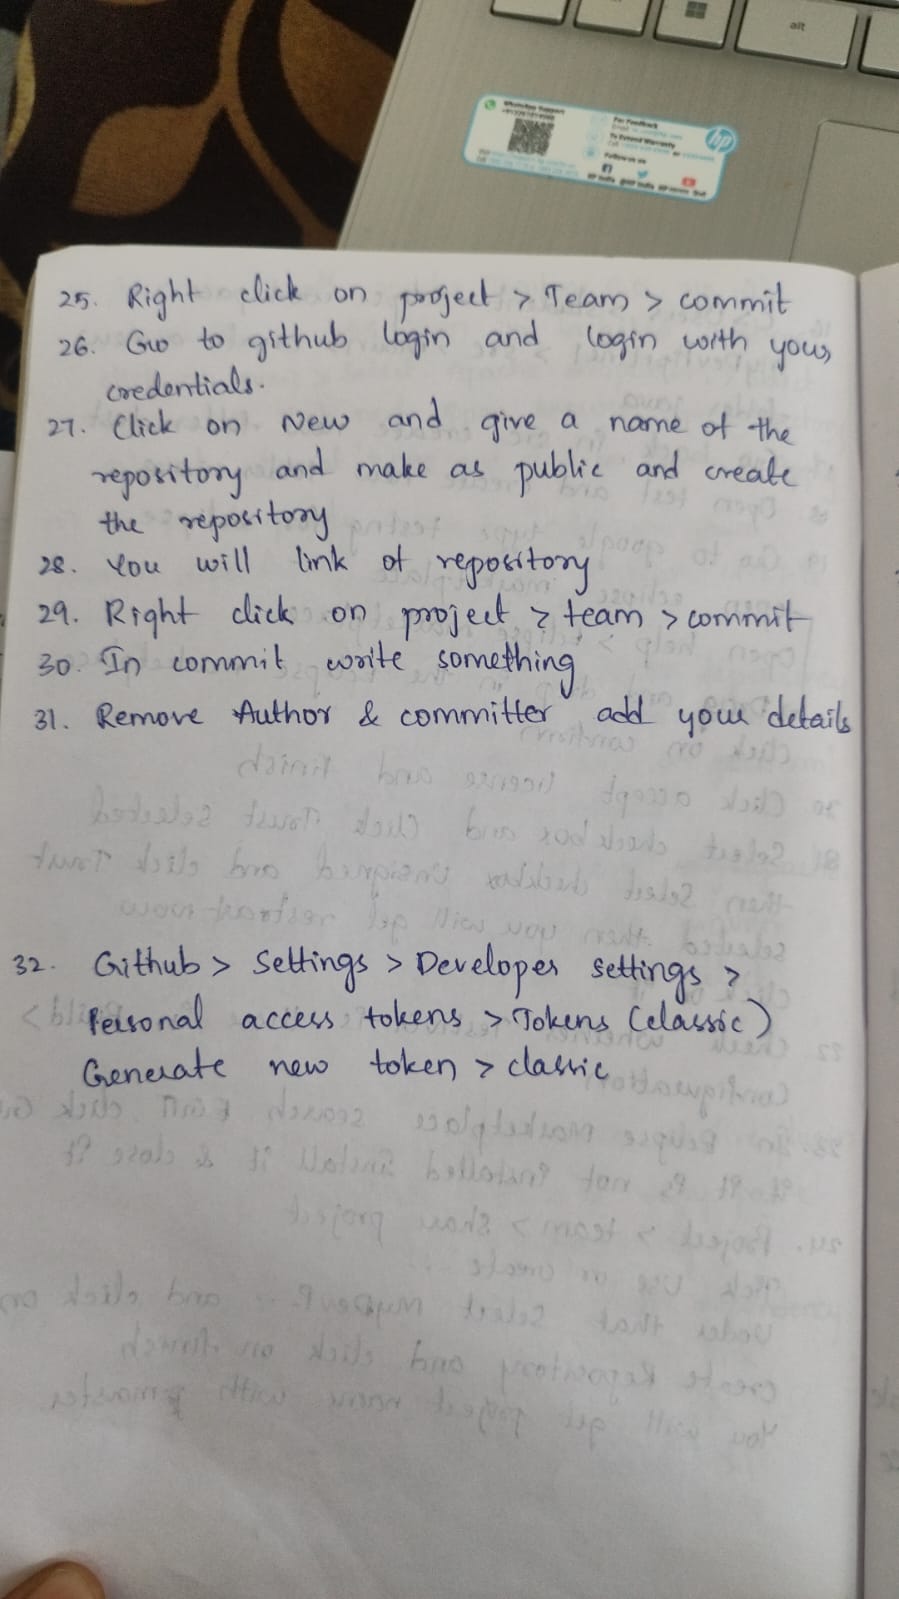 alt
WhatsApp Support
For Feedback
To Extend Warranty
Follow us on
hp
25. Right click on project > Team > commit
26. Go to github login and login with your
credentials.
27. Click on New and give a name of the
repository and make as public and create
the repository
28. You will link of repository
29. Right click on project > team > commit
30. In commit write something
31. Remove Author & committer add your details
32. Github > Settings > Developer settings >
Personal access tokens > Tokens (classic)
Generate new token > classic